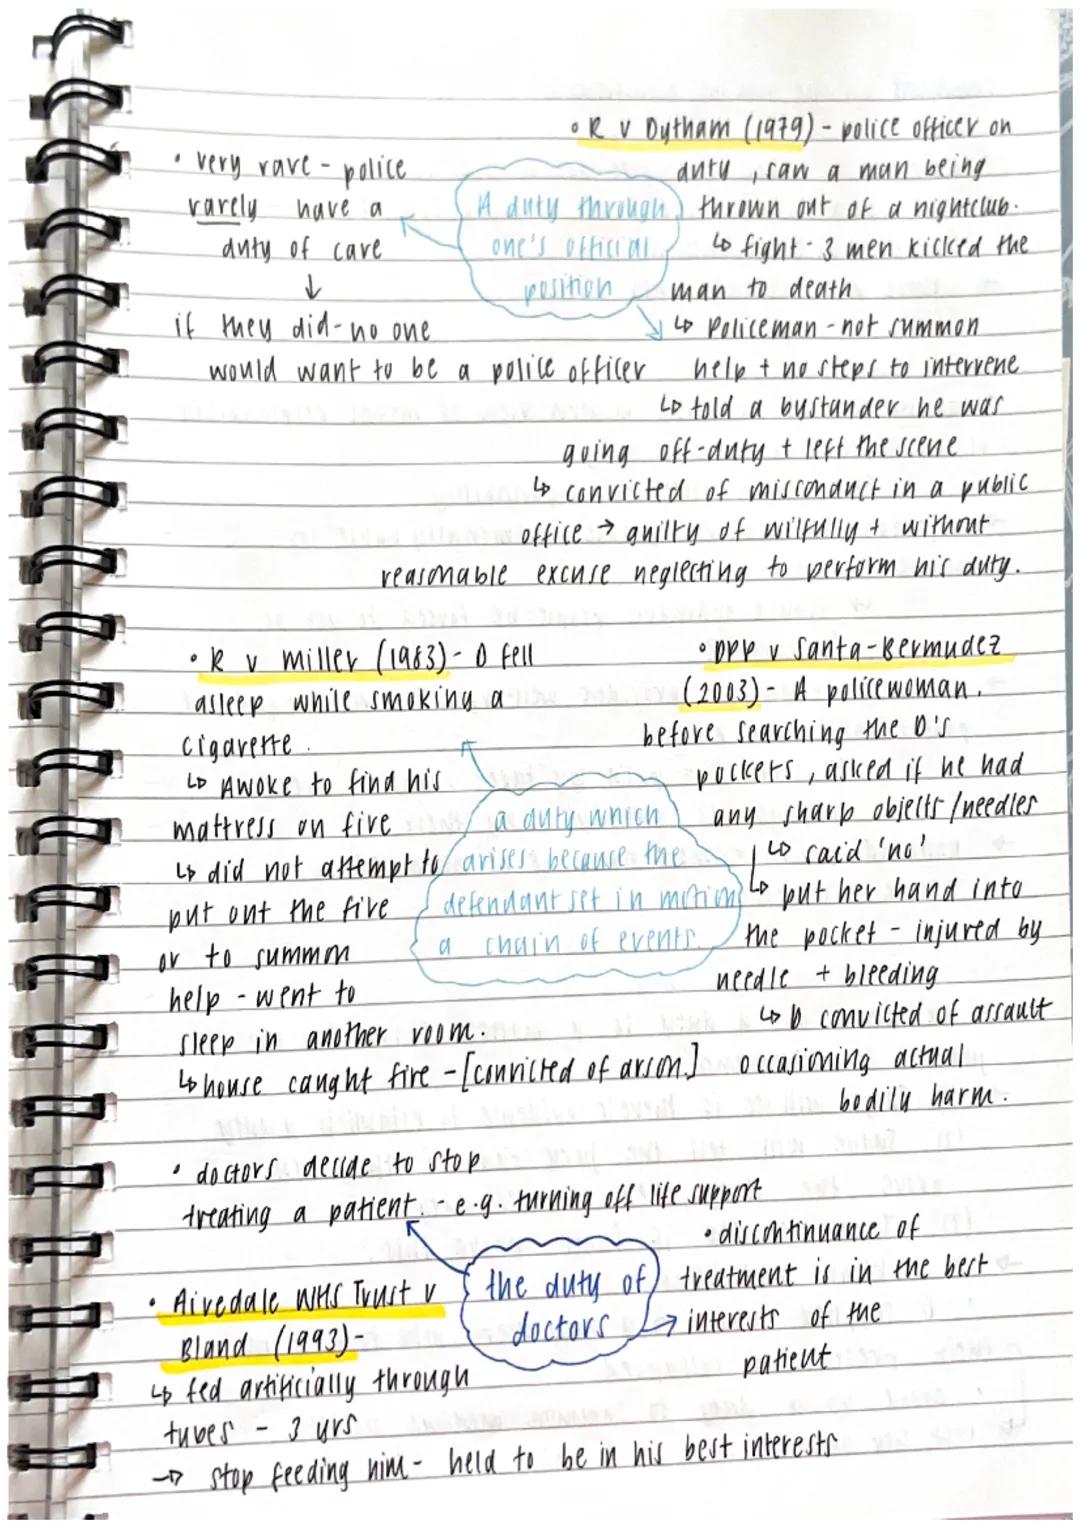 • R v Dytham (1979) - police officer on
duty, saw a man being
thrown out of a nightclub.
↳ fight - 3 men kicked the
man to death
↳ Policeman - not summon
help + no steps to intervene
↳ told a bystander he was
going off-duty + left the scene
↳ convicted of misconduct in a public
office → guilty of wilfully + without
reasonable excuse neglecting to perform his duty.
• very rare - police
rarely have a
duty of care
↓
if they did - no one
would want to be a police officer
A duty through
one's official
position
• R v Miller (1983) - D fell
asleep while smoking a
cigarette.
↳ Awoke to find his
mattress on fire
↳ did not attempt to
put out the fire
or to summon
help - went to
sleep in another room.
↳ house caught fire - [convicted of arson]
a duty which
arises because the
defendant set in motion
a chain of events.
• DPP v Santa-Bermudez
(2003) - A policewoman,
before searching the D's
pockets, asked if he had
any sharp objects/needles
↳ said 'no'
↳ put her hand into
the pocket - injured by
needle + bleeding
↳ D convicted of assault
occasioning actual
bodily harm.
• doctors decide to stop
treating a patient. - e.g. turning off life support
the duty of
doctors
• discontinuance of
treatment is in the best
interests of the
patient
• Airedale NHS Trust v
Bland (1993) -
↳ fed artificially through
tubes - 3 yrs
→ stop feeding him - held to be in his best interests